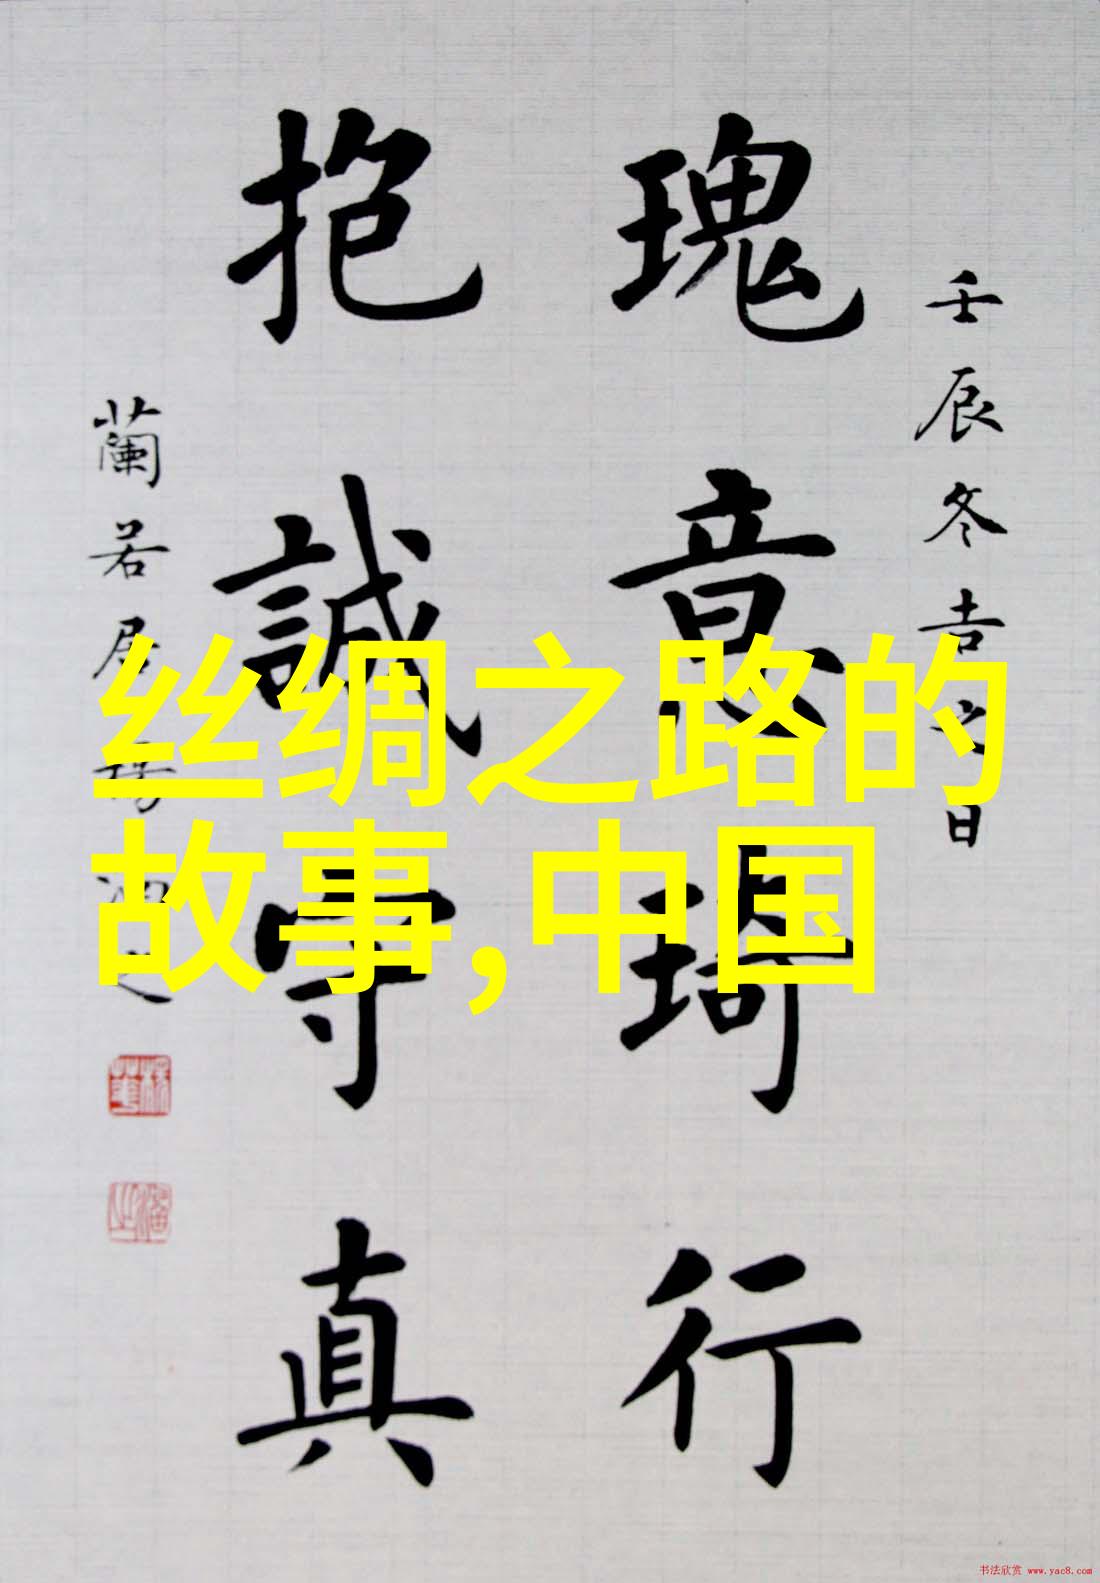 壬辰冬吉之日
瑰意琦行
抱誠守真
蘭若居
丝绸之路的
故事,中国
书法欣赏 www.yac8.com